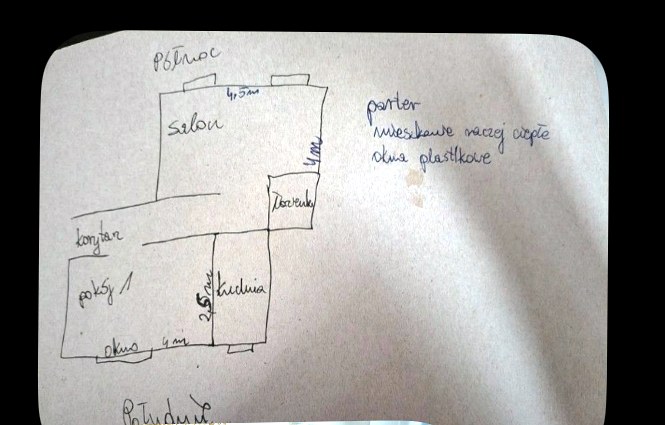 Północ
4,5m
salon
4m
parter
mieszkanie raczej ciepłe
okna plastikowe
Łazienka
korytarz
pokój 1
2,5m
kuchnia
okno
4m
Południe